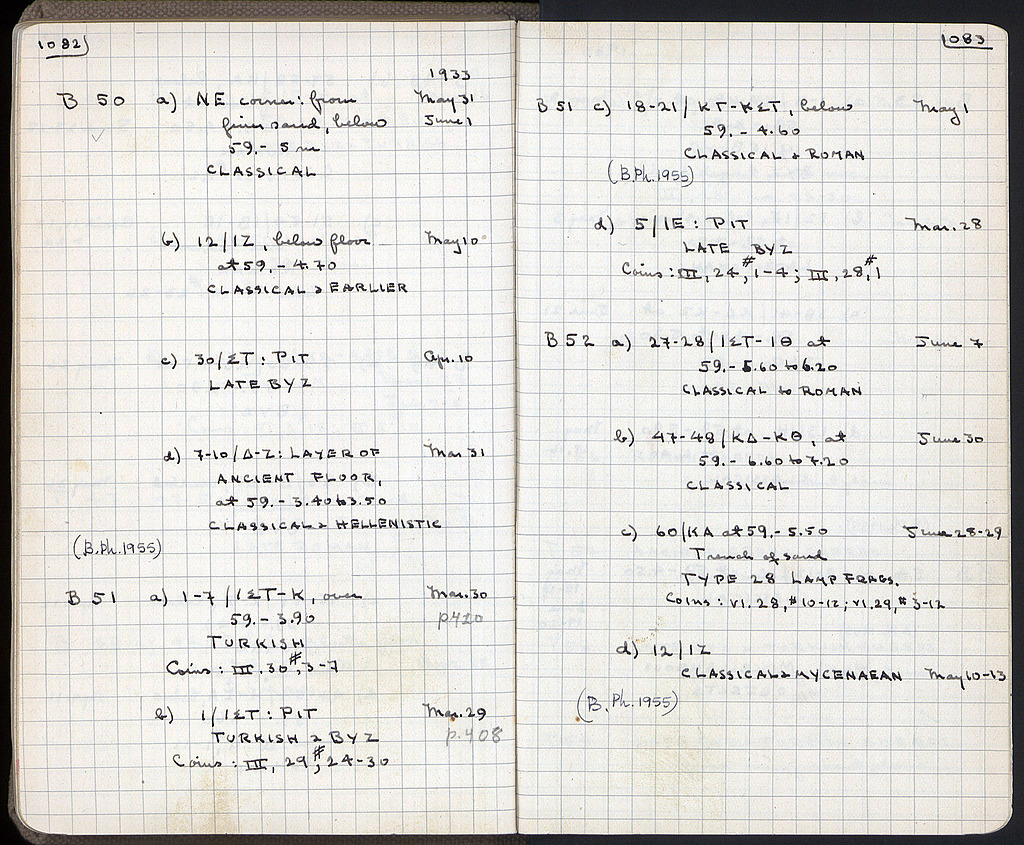 1082
1933
B 50 a) NE corner: from May 31
finer sand, below June 1
59.- 5 m
CLASSICAL
b) 12/IZ, below floor May 10
at 59.- 4.70
CLASSICAL & EARLIER
c) 30/ΣT: PIT Apr. 10
LATE BYZ
d) 7-10/Δ-Z: LAYER OF Mar 31
ANCIENT FLOOR,
at 59.- 3.40 to 3.50
CLASSICAL & HELLENISTIC
(B.Ph. 1955)
B 51 a) 1-7/IΣT-K, over Mar. 30
59.- 3.90 p420
TURKISH
Coins: III. 30, #3-7
b) 1/IΣT: PIT Mar. 29
TURKISH & BYZ p.408
Coins: III, 29, #24-30
1083
B 51 c) 18-21/KΓ-KΣT, below May 1
59.- 4.60
CLASSICAL & ROMAN
(B.Ph. 1955)
d) 5/IE: PIT Mar. 28
LATE BYZ
Coins: III, 24, #1-4; III, 28, #1
B 52 a) 27-28/IΣT-IΘ at June 7
59.- 5.60 to 6.20
CLASSICAL to ROMAN
b) 47-48/KΔ-KΘ, at June 30
59.- 6.60 to 7.20
CLASSICAL
c) 60/KA at 59.- 5.50 June 28-29
Trench of sand
TYPE 28 LAMP FRAGS.
Coins: VI. 28, #10-12; VI. 29, #3-12
d) 12/IZ
CLASSICAL & MYCENAEAN May 10-13
(B. Ph. 1955)